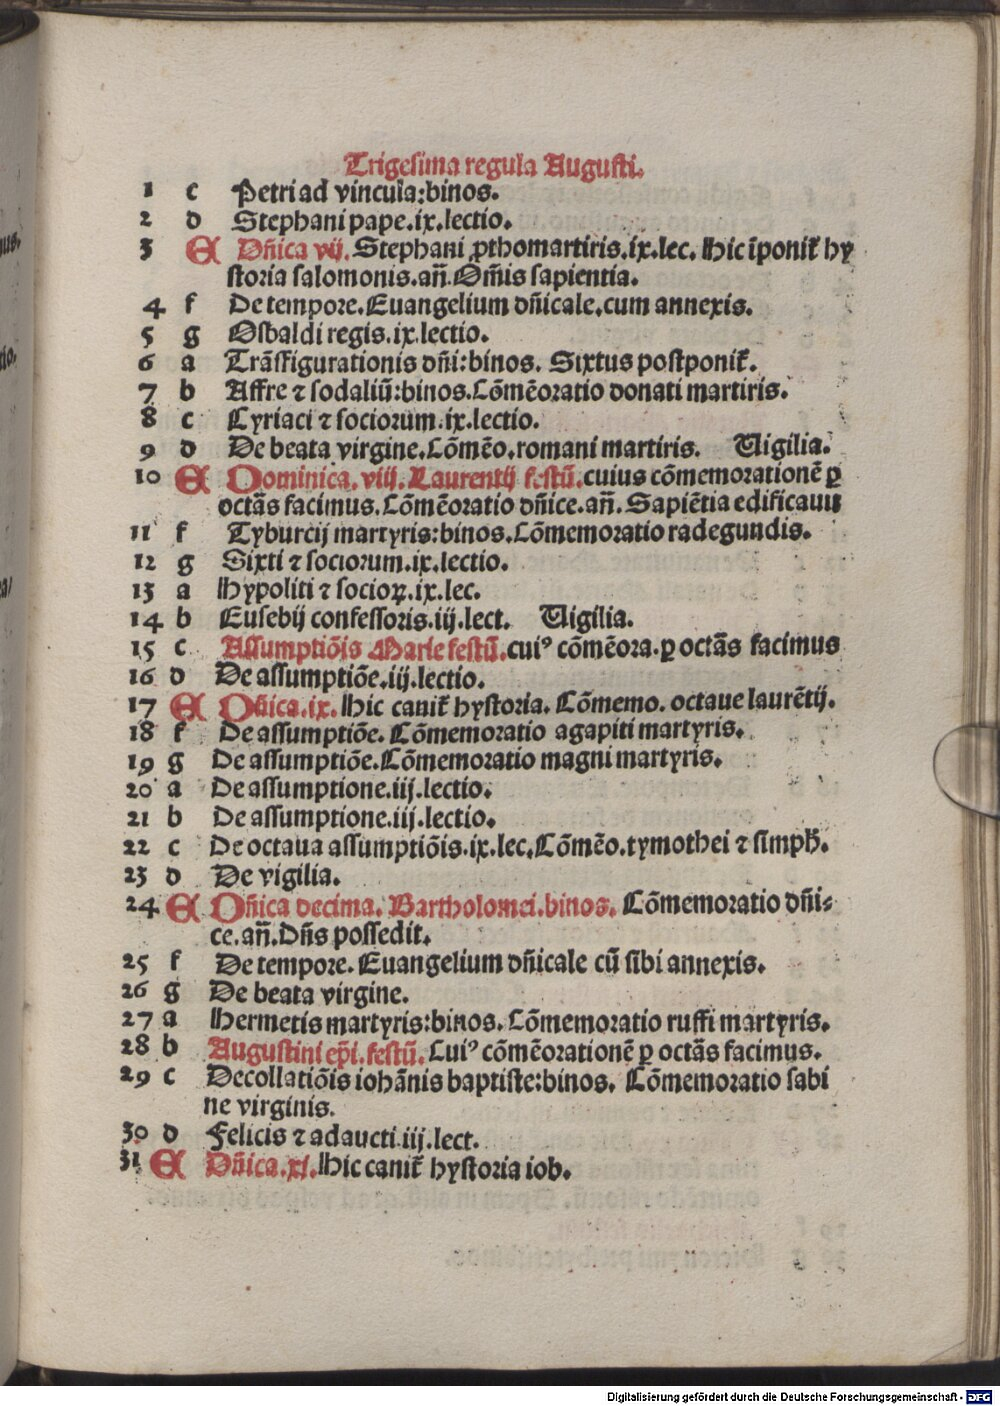 Trigesima regula Augusti.
1 c Petri ad vincula:binos.
2 d Stephani pape.ix.lectio.
3 E Dñica vij. Stephani ꝓthomartiris.ix.lec. Hic īponit᷑ hy
storia salomonis.añ.Om̄is sapientia.
4 f De tempore.Euangelium dñicale.cum annexis.
5 g Osbaldi regis.ix.lectio.
6 a Trāsfigurationis dñi:binos. Sixtus postponit᷑.
7 b Affre ⁊ sodaliū:binos.Cōmēoratio donati martiris.
8 c Cyriaci ⁊ sociorum.ix.lectio.
9 d De beata virgine.Cōmēo.romani martiris. Vigilia.
10 E Dominica. viij. Laurentij festū.cuius cōmemorationē ꝑ
octās facimus.Cōmēoratio dñice.añ.Sapiētia edificauit
11 f Tyburcij martyris:binos.Cōmemoratio radegundis.
12 g Sixti ⁊ sociorum.ix.lectio.
13 a Hypoliti ⁊ socioꝝ.ix.lec.
14 b Eusebij confessoris.iij.lect. Vigilia.
15 c Assumptiōis Marie festū.cuiꝰ cōmēora.ꝑ octās facimus
16 d De assumptiōe.iij.lectio.
17 E Dñica.ix. Hic canit᷑ hystoria. Cōmemo. octaue laurētij.
18 f De assumptiōe. Cōmemoratio agapiti martyris.
19 g De assumptiōe.Cōmemoratio magni martyris.
20 a De assumptione.iij.lectio.
21 b De assumptione.iij.lectio.
22 c De octaua assumptiōis.ix.lec.Cōmēo.tymothei ⁊ simph̄.
23 d De vigilia.
24 E Dñica decima. Bartholomei.binos. Cōmemoratio dñi⸗
ce.añ.Dñs possedit.
25 f De tempore. Euangelium dñicale cū sibi annexis.
26 g De beata virgine.
27 a Hermetis martyris:binos. Cōmemoratio ruffi martyris.
28 b Augustini ep̄i.festū. Cuiꝰ cōmēorationē ꝑ octās facimus.
29 c Decollatiōis iohānis baptiste:binos. Cōmemoratio sabi
ne virginis.
30 d Felicis ⁊ adaucti.iij.lect.
31 E Dñica.xi.Hic canit᷑ hystoria iob.
Digitalisierung gefördert durch die Deutsche Forschungsgemeinschaft - DFG